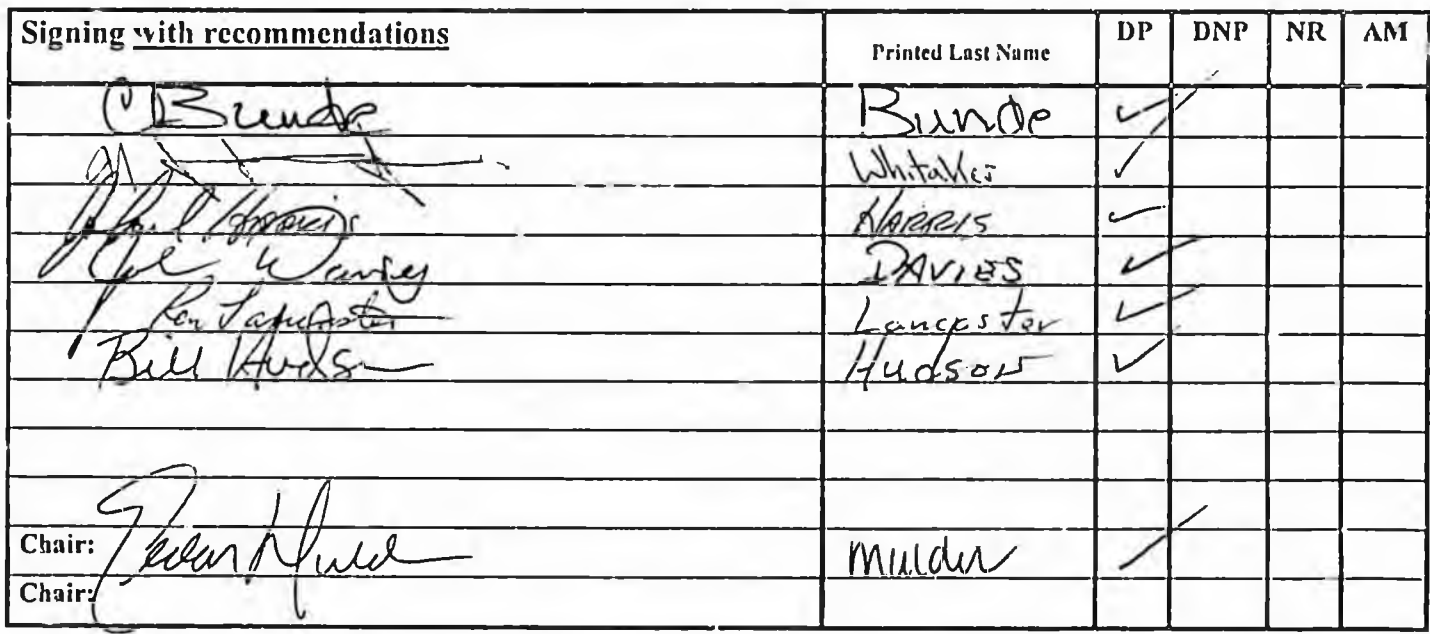 Signing with recommendations Printed Last Name DP DNP NR AM
C Bunde Bunde ✓
Whitaker ✓
Harris HARRIS ✓
DAVIES ✓
Ron Lancaster Lancaster ✓
Bill Hudson Hudson ✓
Chair: Mulder ✓
Chair: